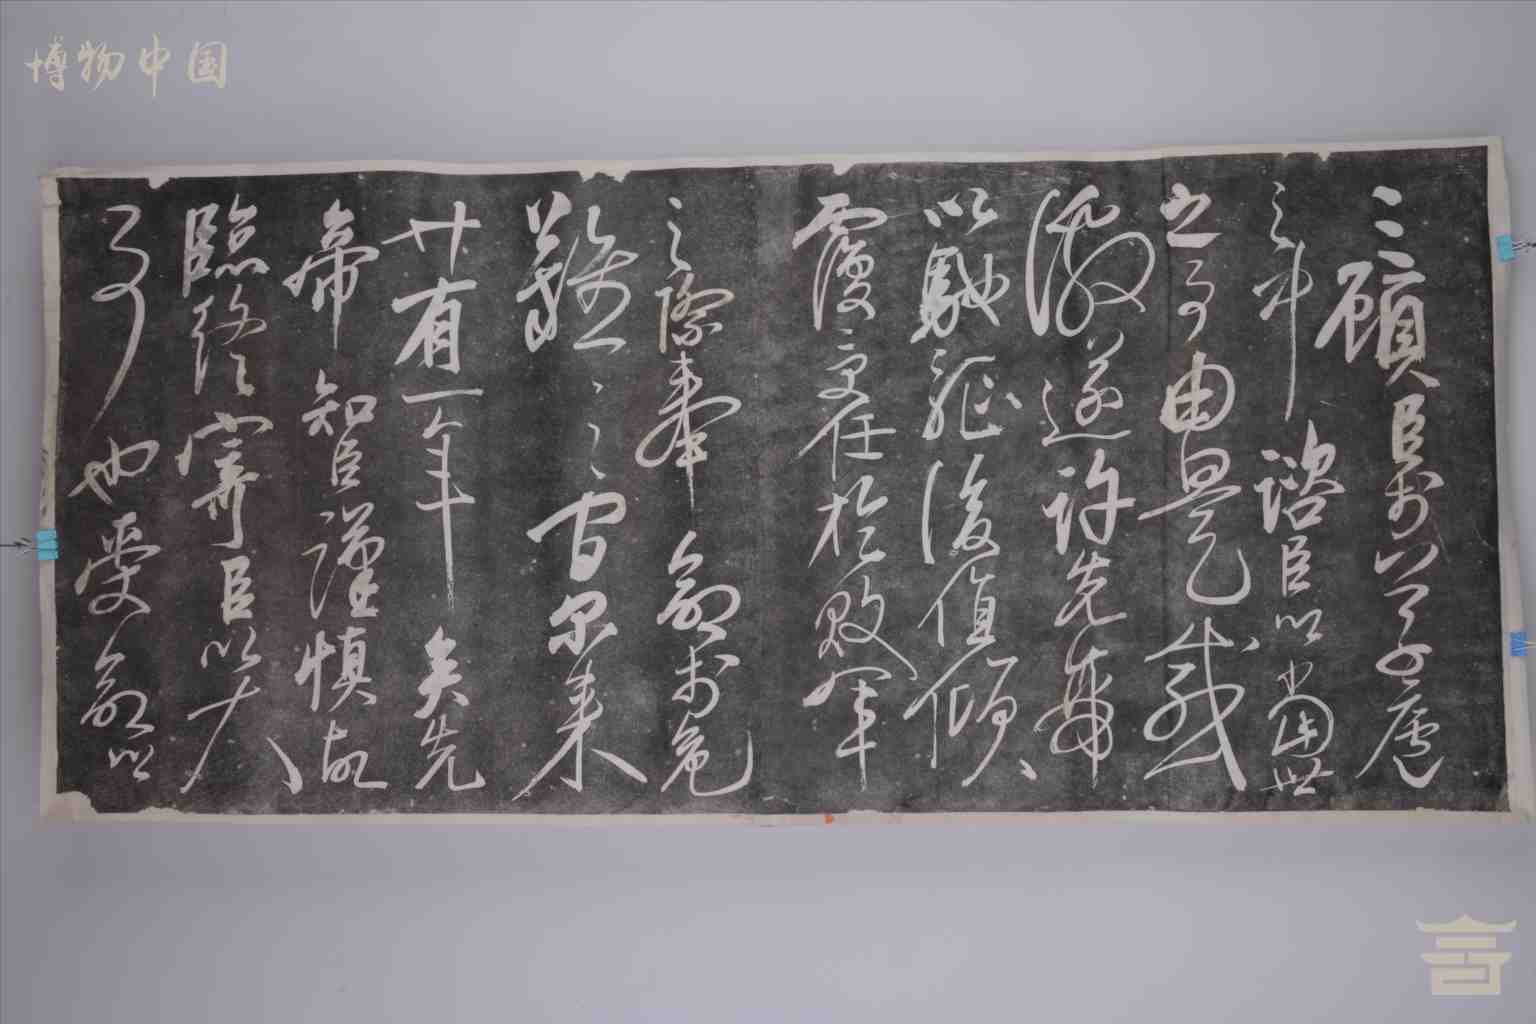 博物中国
三顧臣於草廬
之中諮臣以當世
之事由是感
激遂許先帝
以馳驅後值傾
覆受任於敗軍
之際奉命於危
難之間尔來
廿有一年矣先
帝知臣謹慎故
臨終寄臣以大
事也受命以